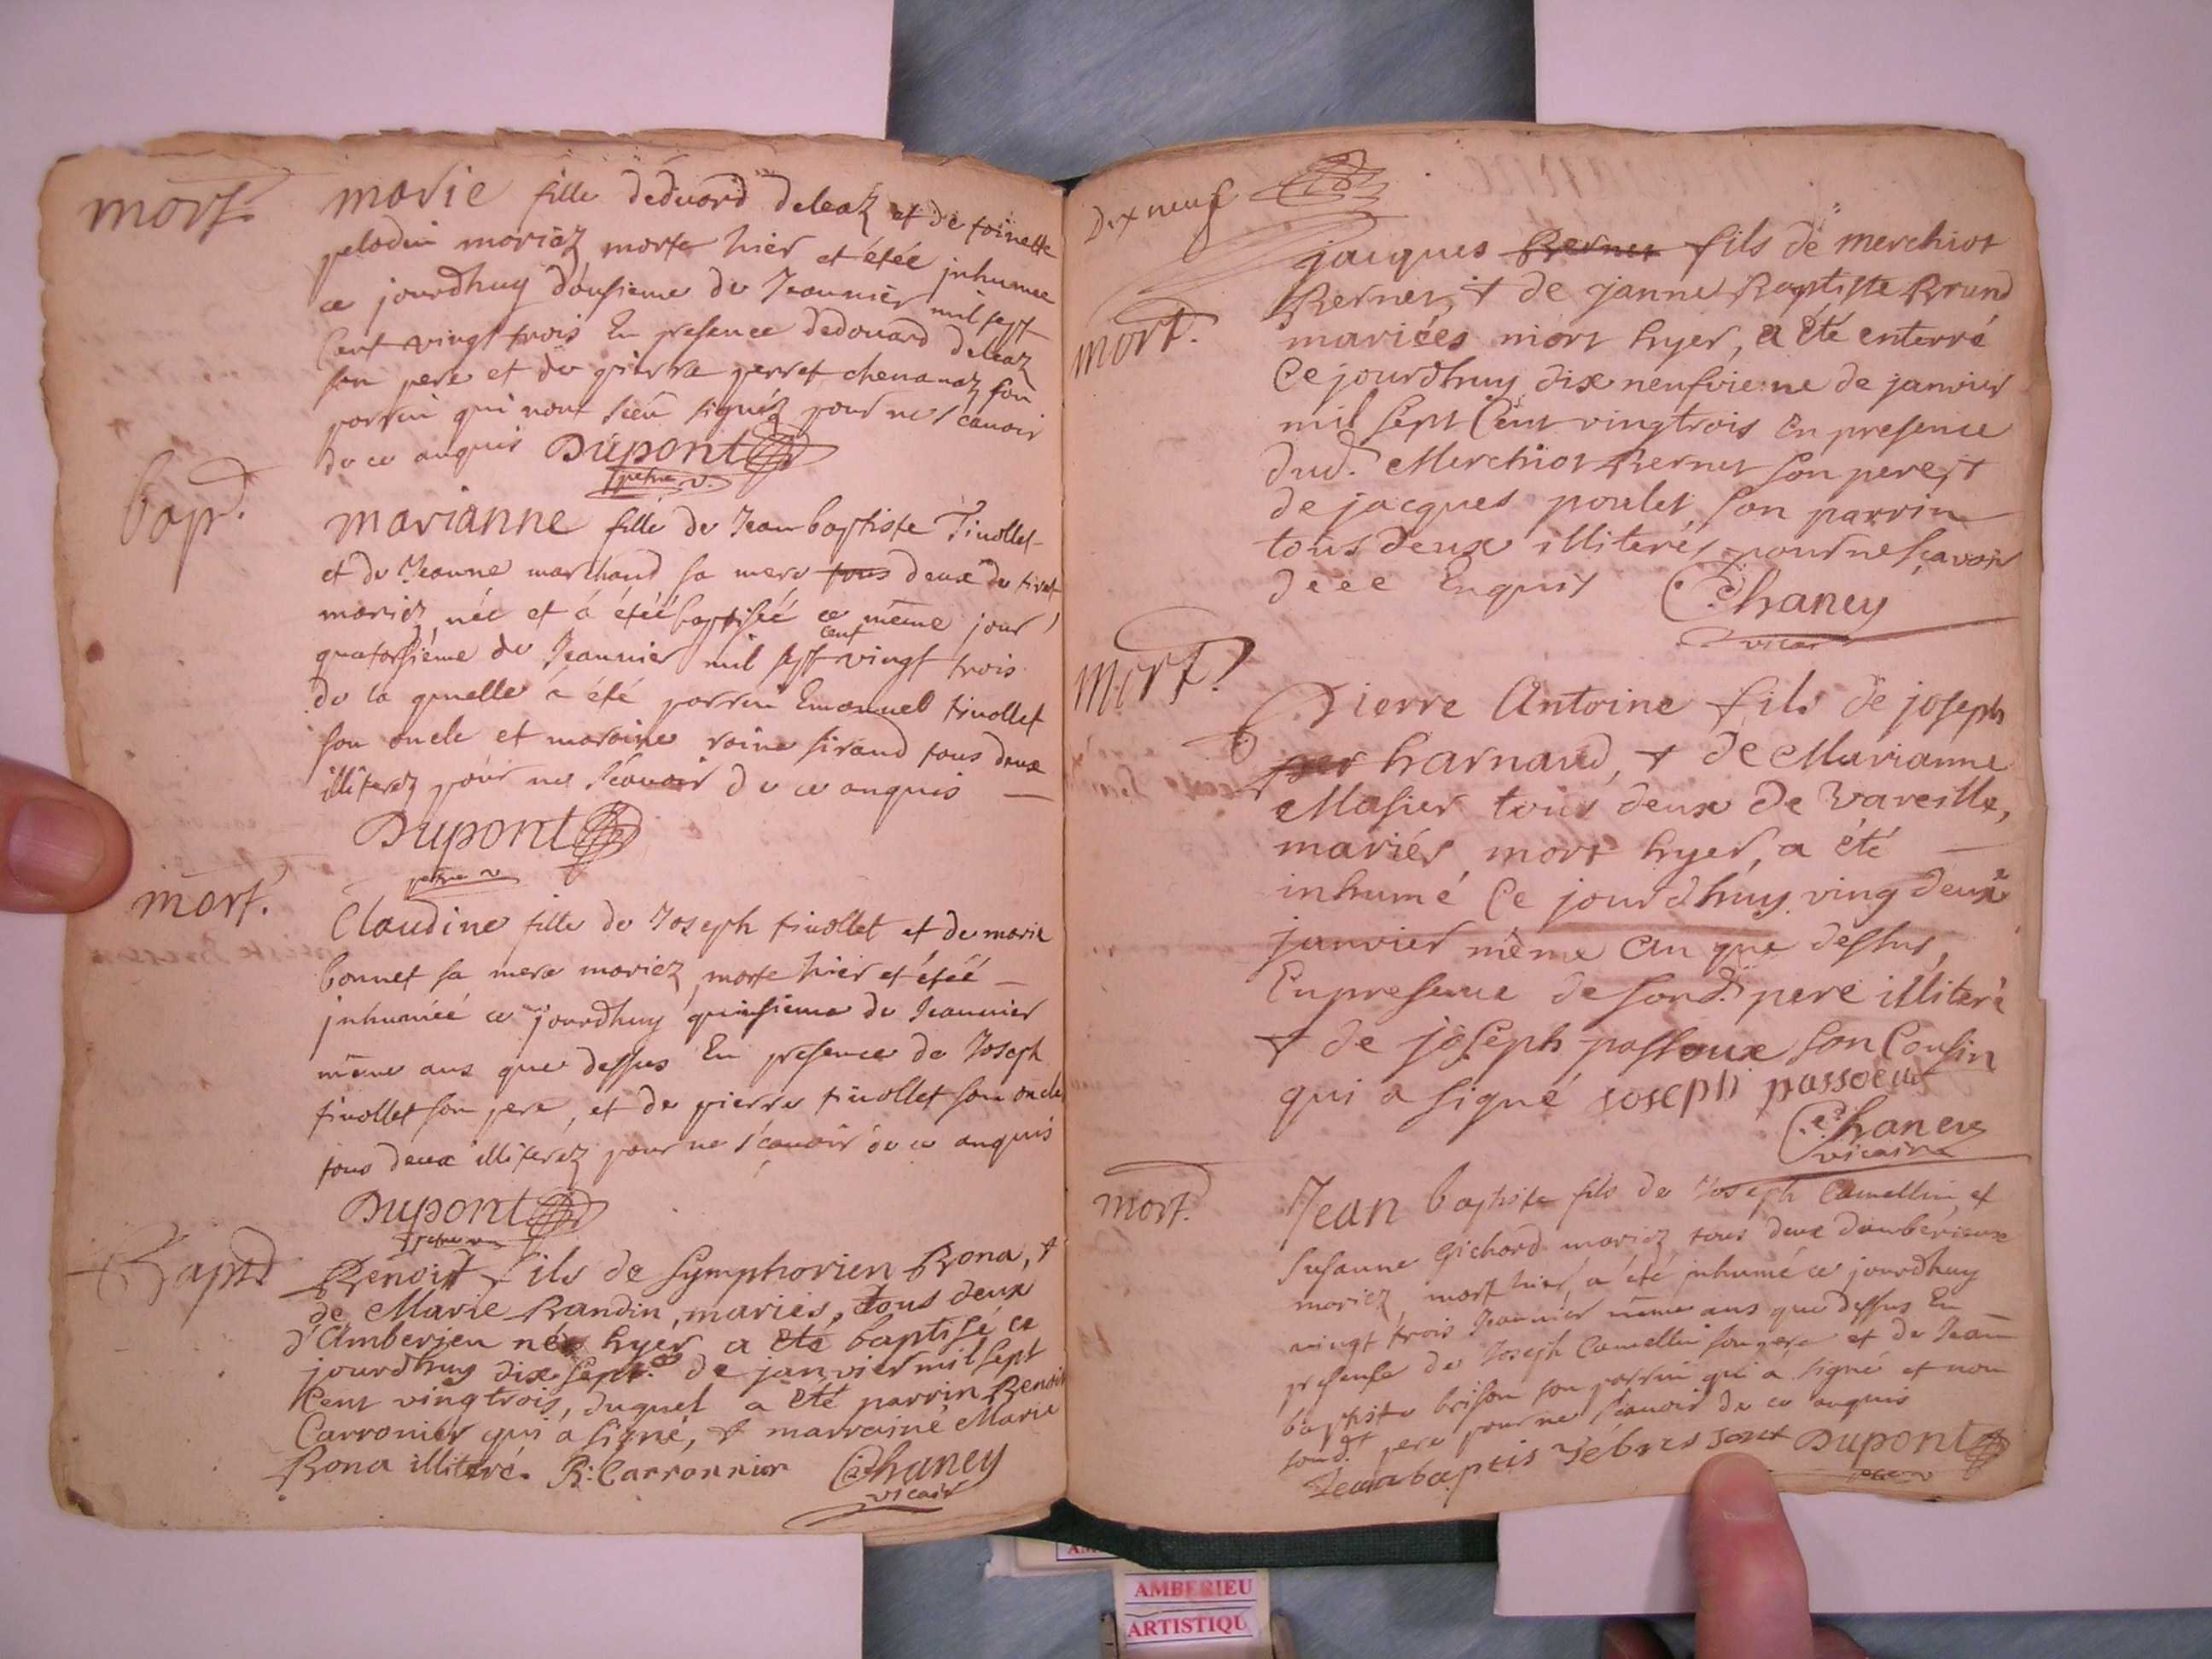 mort.
marie fille deduard deleaz et de toinette
peladin mariéz morte hier et étéé jnhumee
ce jourdhuy dousieme de Jeanuier mil sept
Cent vingt trois En presence dedouard deleaz
son pere et de pierre perret chenauaz son
parrin qui nont sceu signéz pour ne scauoir
de ce enquis Dupont
pretre v.
bap.
marianne fille de Jean baptiste Tiuollet
et de Jeanne marchand sa mere tous deux de tiret
mariez née et á étéé baptiséé ce même jour
quatorsiéme de Jeannier mil sept cent vingt trois
de la quuelle a été parrin Emanuel tiuollet
son oncle et maraine roine sirand tous deux
illiterez pour ne scauoir de ce anquis
Dupont
pretre v
mort.
Claudine fille de Joseph tiuollet et de marie
bonnet sa mere mariez morte hier et étéé
jnhuméé ce jourdhuy quinsieme de Jeannier
même ans que dessus En presence de Joseph
tiuollet son pere, et de pierre tiuollet son oncle
tous deux illiterez pour ne scauoir de ce anquis
Dupont
pretre v
Bapt.
Benoist fils de Symphorien Bona, et
de Marie Bandin, mariés, tous deux
d'Amberieu né hyer a eté baptisé ce
jourdhuy dix sept.e de janvier mil sept
Cent vingtrois, duquel a eté parrin Benoit
Carronier qui a signé, et marraine Marie
Bona illiteré. B: Carronnier Chaney
vicair
Dix neuf
mort.
jacques Bernet fils de merchiot
Bernet, et de janne Baptiste Brund
mariées mort hyer, a été enterré
Ce jourdhuy dix neufvieme de janvier
mil sept Cent vingtrois En presence
dud. Merchiot Bernet son pere, et
de jacques poulet son parrin
tous deux illiterés pour ne sçavoir
de ce Enquis Chaney
vicair
Mort.
Pierre Antoine fils de joseph
per harnaud, et de Marianne
Masuer tous deux de Vareille,
mariés mort hyer, a été
inhumé Ce jourdhuy ving deux
janvier même an que dessus,
En presence de sond. pere illiteré
et de joseph passoux son Cousin
qui a signé joseph passoux
Chaney
vicaire
mort.
Jean baptiste fils de Joseph Camellin et
susanne Gichard mariez tous deux damberieux
mariez, mort hier, a été jnhumé ce jourdhuy
vingt trois Jeannier même ans que dessus En
presense de Joseph Camellin son pere et de Jean
baptiste brison son parrin qui a signé et non
sond. pere pour ne scauoir de ce anquis
Dupont